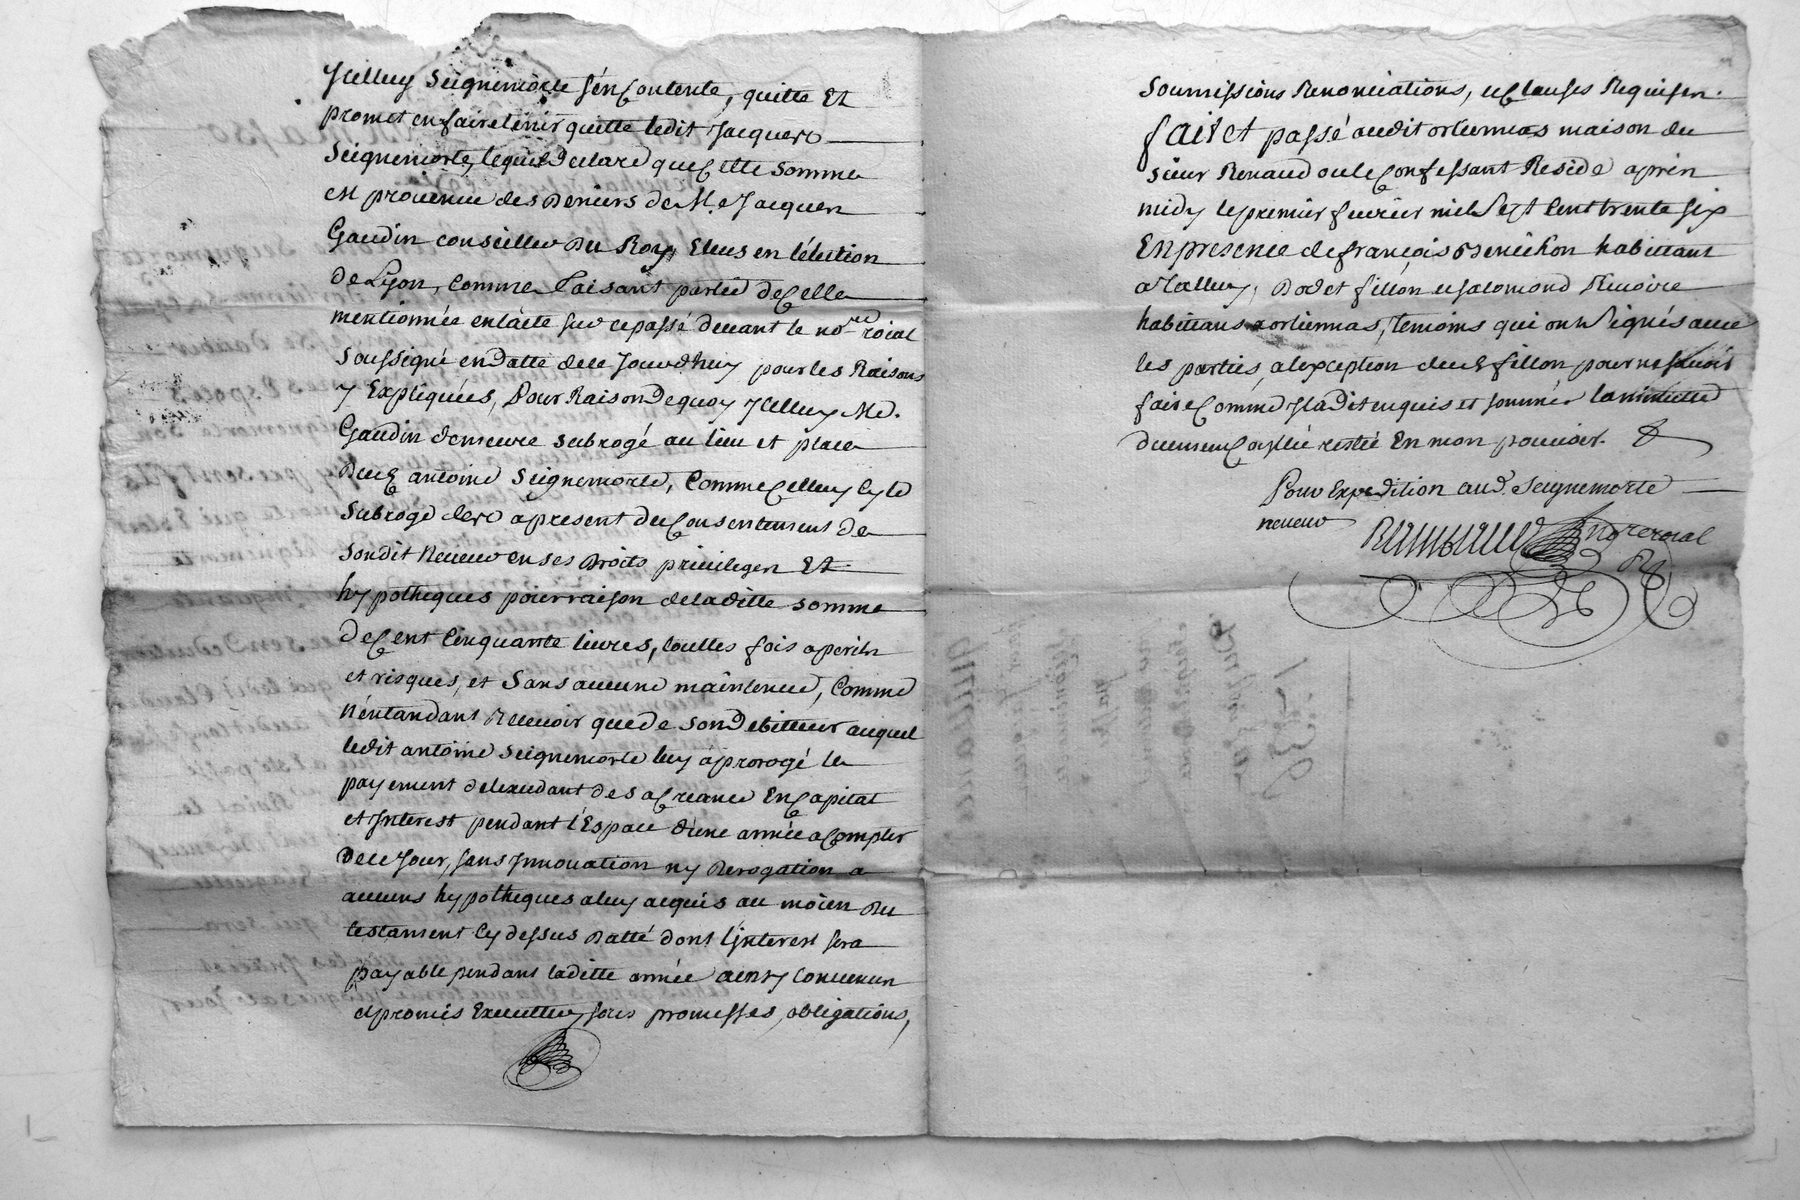 Icelluy Seignemorte s'en Contente, quitte Et
promet en faire tenir quitte ledit Jacques
Seignemorte, lequel declare que Cette Somme
est provenue des Deniers de M.e Jacques
Gaudin conseiller Du Roy, Eleus en l'élection
de Lyon, Comme faisant partie de Celle
mentionnée en l'acte sur ce passé devant le no.re roial
soussigné en Datte de ce Jourd'huy pour les Raisons
y Expliquées, Pour Raison De quoy Icelluy Me.
Gaudin demeure subrogé au lieu et place
Dud. antoine Seignemorte, Comme Celluy Cy le
Subroge dez a present du Consentement de
Sondit Neveu en ses Droits privileges Et
hypotheques pour raison de laditte somme
de Cent Cinquante livres, touttes fois a perils
et risques, et Sans aucune maintenue, Comme
n'entandant Recevoir que de Son Debitteur auquel
ledit antoine Seignemorte luy a prorogé le
payement de l'excedant de sa Creance En Capital
et Interest pendant l'Espace d'une année a Compter
De ce Jour, sans Innovation ny Derogation a
aucuns hypotheques a luy acquis au moien Du
testament Cy dessus Datté dont l'Interest sera
payable pendant laditte année ainsy Convenu
et promis Executter sous promesses, obligations,
Soumissions Renonciations, et Clauses Requises.
fait et passé audit orliennas maison du
sieur Renaud ou le Confessant Reside apres
midy le premier fevrier mil Sept Cent trente six
En presence de francois Benichon habittant
a Talluy, fillon et salomond
habittans a orliennas, temoins qui ont Signés avec
les parties, a l'exception dud. fillon pour ne scavoir
faire Comme Il a dit enquis et sommé la minutte
duement Controllée restée En mon pouvoir. &
Pour Expedition aud. Seignemorte
neveu
no.re roial